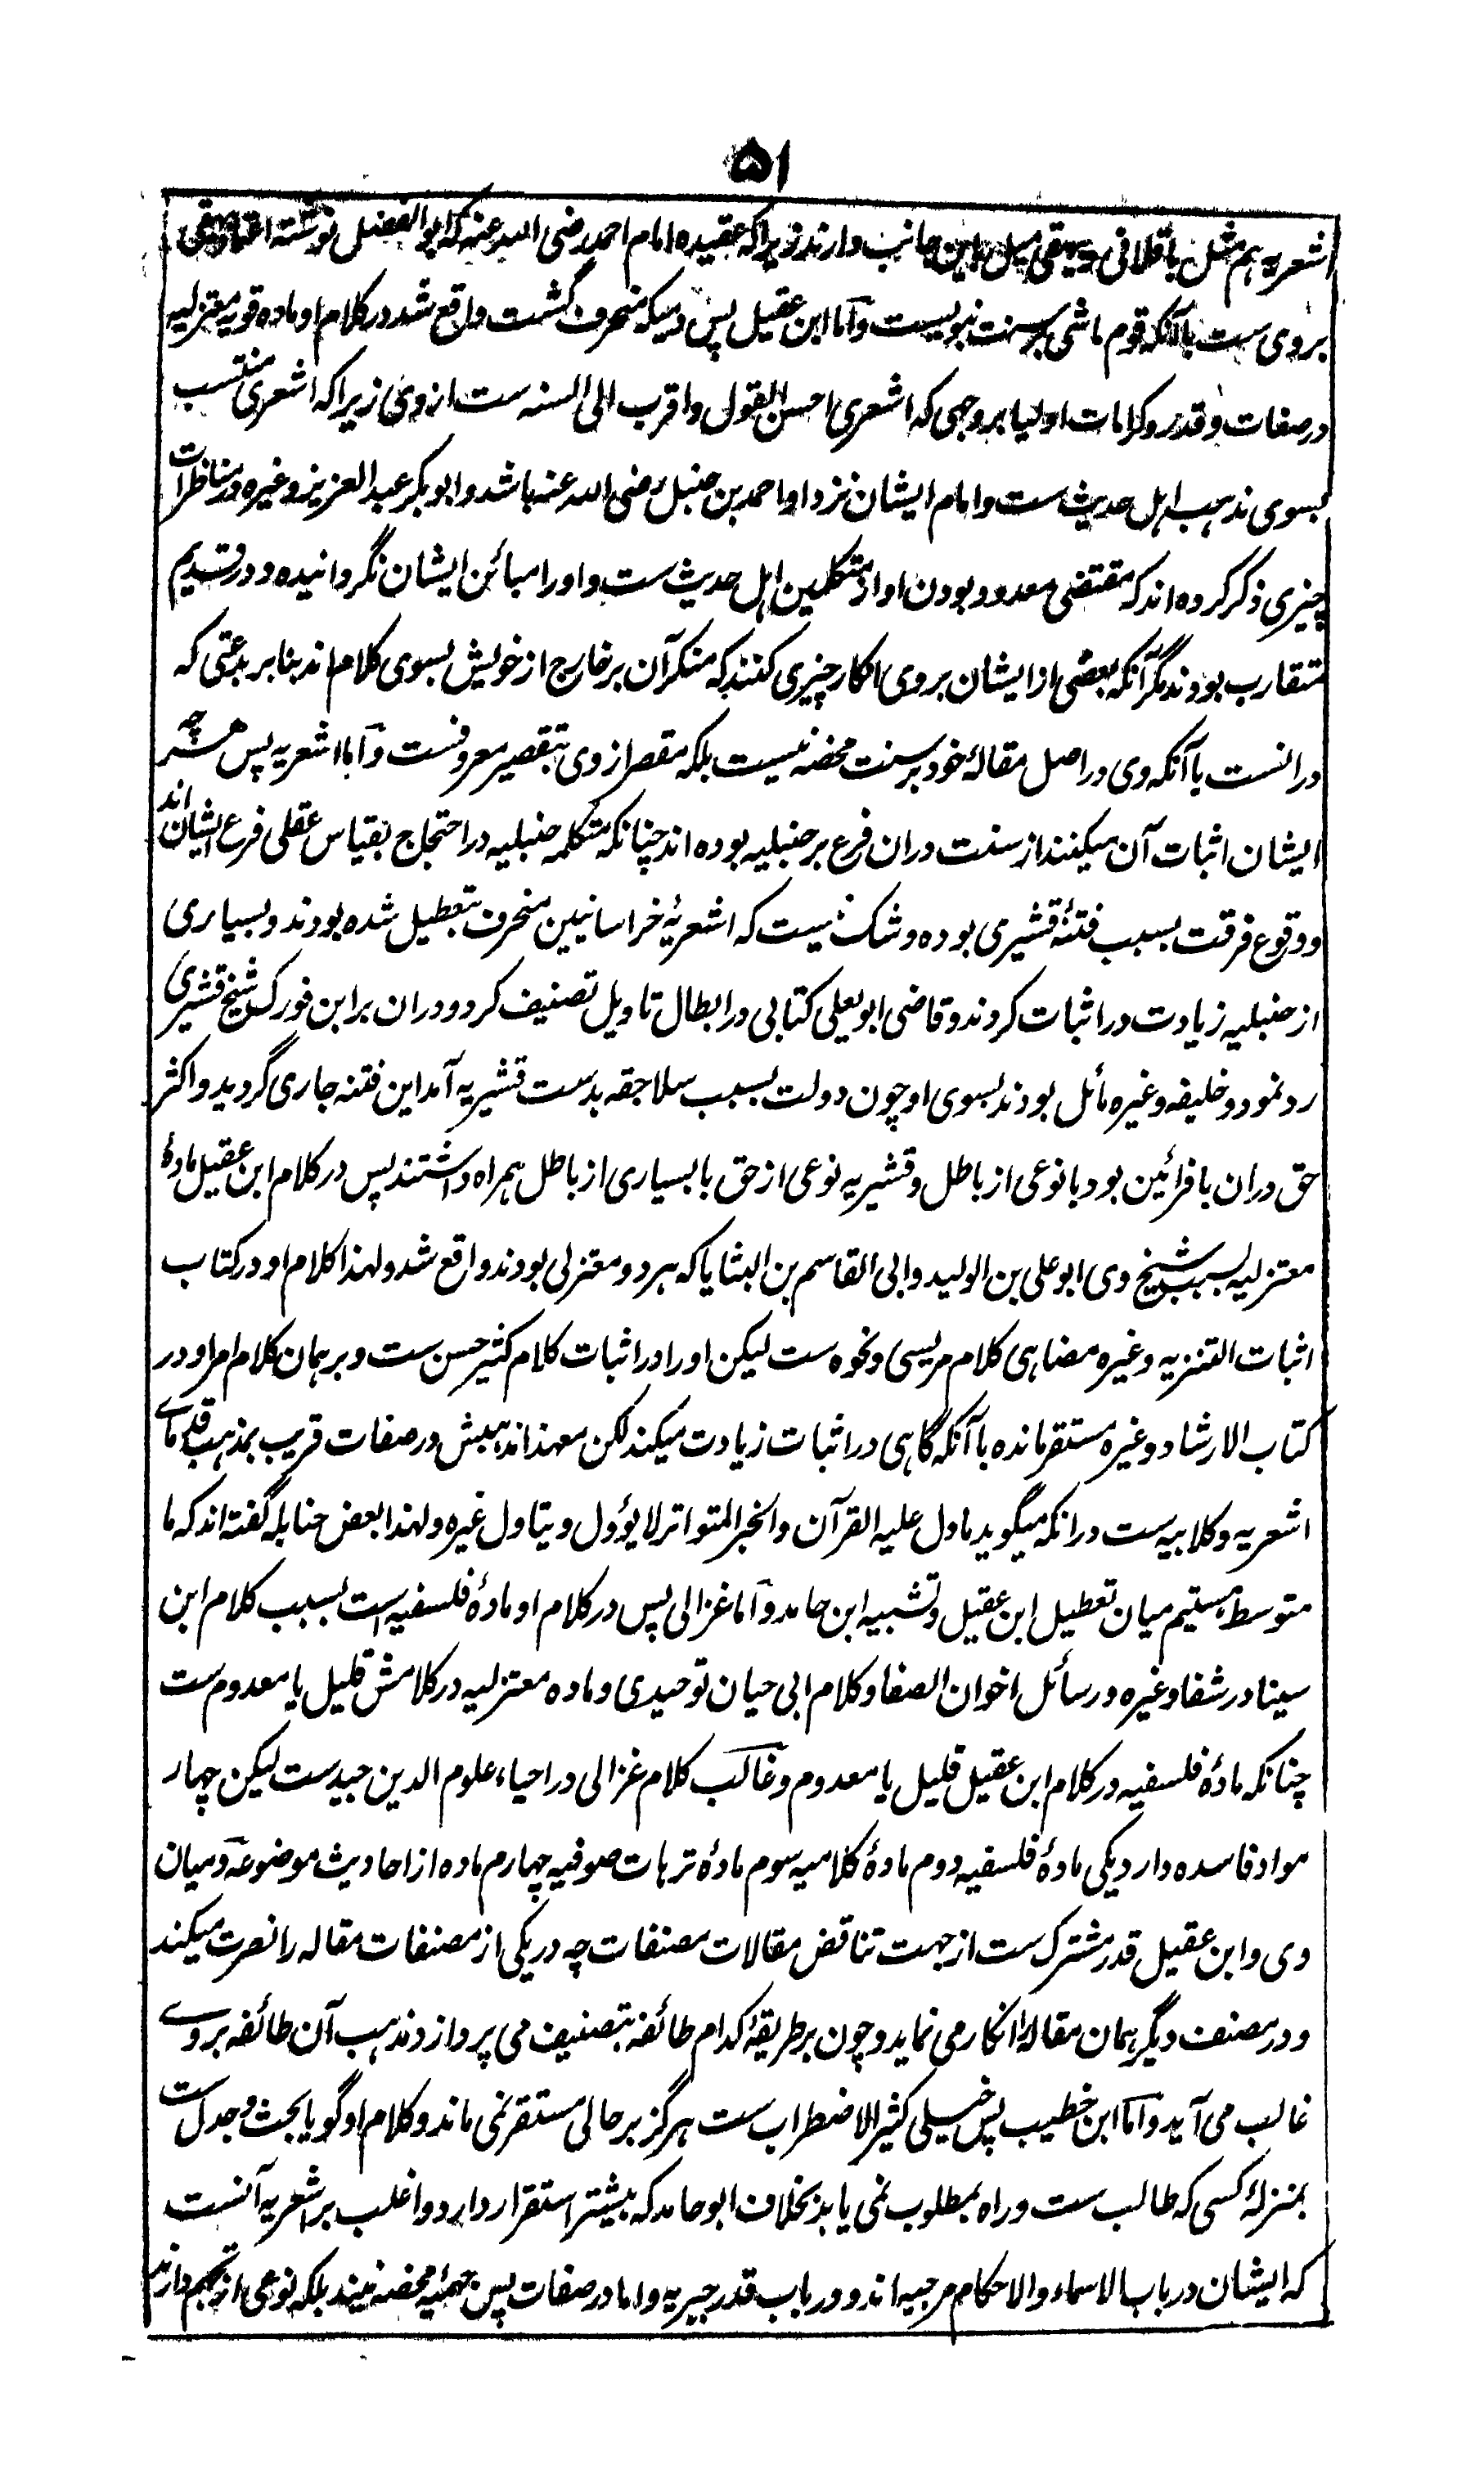 ۵۱
اشعریه هم مثل باقلانی و بیهقی میل باین جانب دارند زیراکه عقیده امام احمد رضی الله عنه که ابو الفضل نوشته اعتماد بیهقی
بروی ست باآنکه قوم ماشی بر سنت نبویست و اما ابن عقیل پس وقتیکه منحرف گشت واقع شد در کلام او ماده قویه معتزلیه
در صفات و قدر و کرامات اولیا بروجهی که اشعری احسن القول و اقرب الی السنه ست از وی زیراکه اشعری منتسب
بسوی مذهب اهل حدیث ست و امام ایشان نزد او احمد بن حنبل رضی الله عنه باشد و ابوبکر عبد العزیز و غیره در مناظرات
چیزی ذکر کرده اند که مقتضی معدود بودن او از متکلمین اهل حدیث ست و او را مبائن ایشان نگردانیده و در قدیم
متقارب بودند مگر آنکه بعضی از ایشان بروی انکار چیزی کنند که منکر آن بر خارج از خویش بسوی کلام اند بنابر بدعتی که
درانست باآنکه وی در اصل مقالهٔ خود بر سنت محضه نیست بلکه مقصر از وی بتقصیر معروفست و اما اشعریه پس هر چه
ایشان اثبات آن میکنند از سنت دران فرع بر حنبلیه بوده اند چنانکه متکلمه حنبلیه در احتجاج بقیاس عقلی فرع ایشان اند
و وقوع فرقت بسبب فتنهٔ قشیری بوده و شک نیست که اشعریهٔ خراسانیین منحرف بتعطیل شده بودند و بسیاری
از حنبلیه زیادت در اثبات کردند و قاضی ابویعلی کتابی در ابطال تاویل تصنیف کرد و دران بر ابن فورک شیخ قشیری
رد نمود و خلیفه و غیره مائل بودند بسوی او چون دولت بسبب سلاجقه بدست قشیریه آمد این فتنه جاری گردید و اکثر
حق دران با فرائین بود با نوعی از باطل و قشیریه نوعی از حق با بسیاری از باطل همراه داشتند پس در کلام ابن عقیل مادهٔ
معتزلیه بسبب شیخ وی ابوعلی بن الولید و ابی القاسم بن البشایا که هر دو معتزلی بودند واقع شد و لهذا کلام او در کتاب
اثبات التنزیه و غیره مضاهی کلام مریسی و نحوه ست لیکن او را در اثبات کلام کثیر حسن ست و بر همان کلام امر او در
کتاب الارشاد و غیره مستقر مانده باآنکه گاهی در اثبات زیادت میکند لکن معهذا مذهبش در صفات قریب بمذهب قدمای
اشعریه و کلابیه ست درانکه میگوید مادل علیه القرآن والخبر المتواتر لا یؤول و یتاول غیره و لهذا بعض حنابله گفته اند که ما
متوسط هستیم میان تعطیل ابن عقیل و تشبیه ابن حامد و اما غزالی پس در کلام او مادهٔ فلسفیه است بسبب کلام ابن
سینا در شفا و غیره و رسائل اخوان الصفا و کلام ابی حیان توحیدی و ماده معتزلیه در کلامش قلیل یا معدوم ست
چنانکه مادهٔ فلسفیه در کلام ابن عقیل قلیل یا معدوم و غالب کلام غزالی در احیاء علوم الدین جید ست لیکن چهار
مواد فاسده دارد یکی مادهٔ فلسفیه دوم مادهٔ کلامیه سوم مادهٔ ترهات صوفیه چهارم ماده از احادیث موضوعه و میان
وی و ابن عقیل قدر مشترک ست از جهت تناقض مقالات مصنفات چه در یکی از مصنفات مقاله را نصرت میکند
و در مصنف دیگر همان مقاله را انکار می نماید و چون بر طریقهٔ کدام طائفه بتصنیف می پردازد مذهب آن طائفه بروے
غالب می آید و اما ابن خطیب پس خیلی کثیر الاضطراب ست هرگز بر حالی مستقر نمی ماند و کلام او گویا بحث و جدل ست
بمنزلهٔ کسی که طالب ست و راه بمطلوب نمی یابد بخلاف ابو حامد که بیشتر استقرار دارد و اغلب بر اشعریه آنست
که ایشان در باب الاسماء والاحکام مرجیه اند و در باب قدر جبریه و اما در صفات پس جهمیهٔ محضه نیند بلکه نوعی از تجهم دارند